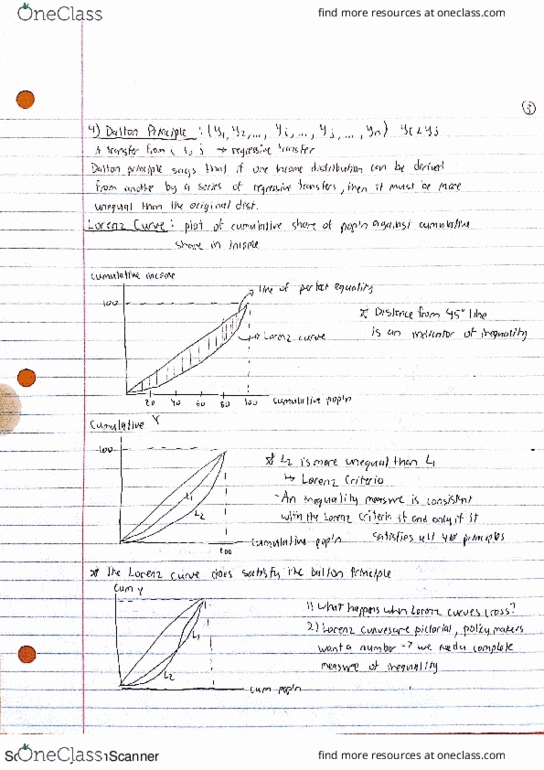 OneClass
find more resources at oneclass.com
3
4) Dalton Principle : (y1, y2, ..., yi, ..., yj, ..., yn) yi < yj
A transfer from i to j → regressive transfer
Dalton principle says that if one income distribution can be derived
from another by a series of regressive transfers, then it must be more
unequal than the original dist.
Lorenz Curve : plot of cumulative share of pop'n against cumulative
share in income
cumulative income
line of perfect equality
100
* Distance from 45° line
Lorenz curve
is an indicator of inequality
20 40 60 80 100 cumulative pop'n
Cumulative Y
100
* L2 is more unequal than L1
↳ Lorenz Criterio
L1
- An inequality measure is consistent
L2
with the Lorenz Criteria if and only if it
cumulative pop'n
satisfies all 4 principles
100
* The Lorenz curve does satisfy the Dalton Principle
Cum Y
1) What happens when Lorenz curves cross?
L1
2) Lorenz curves are pictorial, policy makers
want a number → we need complete
L2
measure of inequality
cum pop'n
OneClass
Scanner
find more resources at oneclass.com